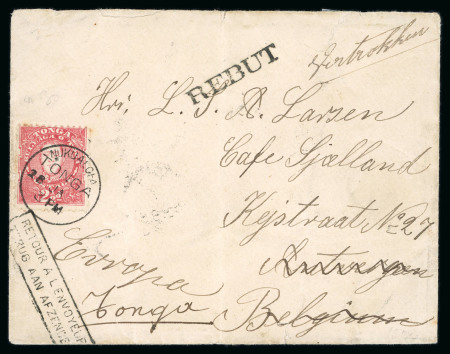 REBUT
Vertrokken
Hri. L. J. A. Larsen
Cafe Sjælland
Kejstraat No 27
Antwerpen
Belgium
Europa
Tonga
TONGA
NUKUALOFA
TONGA
3 PM
RETOUR À L'ENVOYEUR
RUG AAN AFZENDE